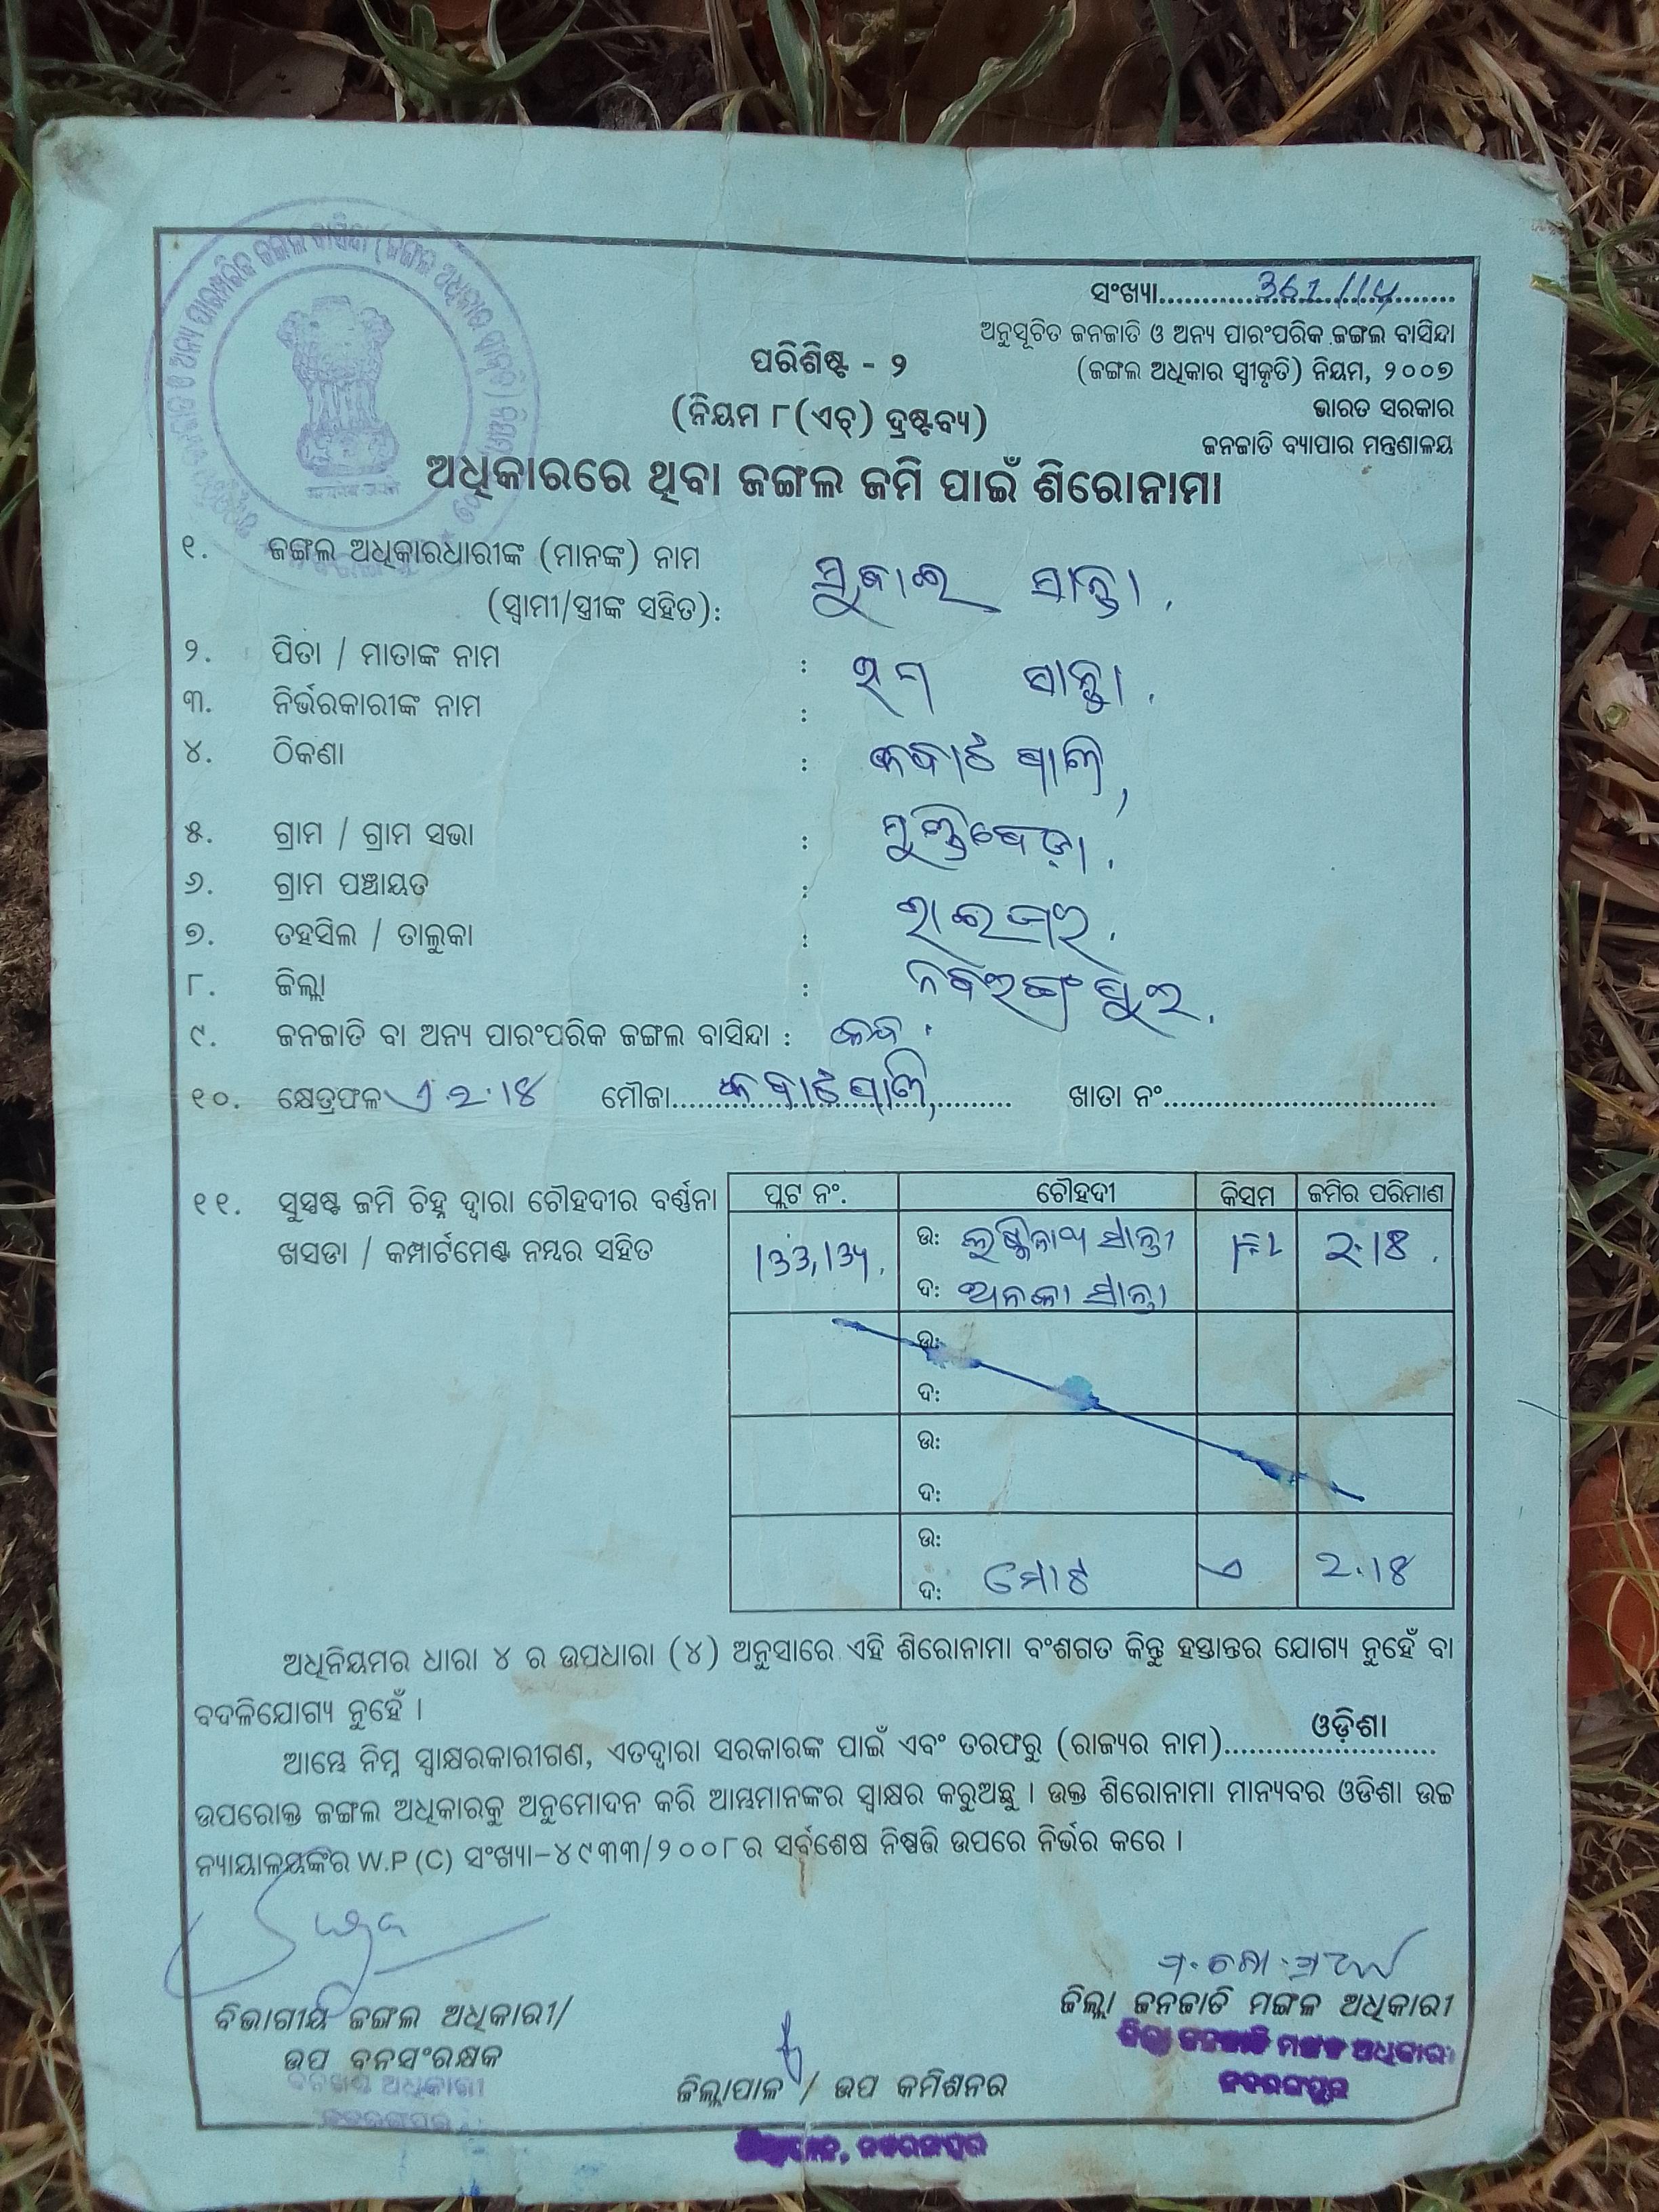 ସଂଖ୍ୟା
ଅନୁସୂଚିତ ଜନଜାତି ଓ ଅନ୍ୟ ପାରଂପରିକ ଜଙ୍ଗଲ ବାସିନ୍ଦା
(ଜଙ୍ଗଲ ଅଧିକାର ସ୍ୱୀକୃତି) ନିୟମ, ୨୦୦୭
ଭାରତ ସରକାର
ଜନଜାତି ବ୍ୟାପାର ମନ୍ତ୍ରଣାଳୟ
ପରିଶିଷ୍ଟ - ୨
(ନିୟମ ୮(ଏଚ୍) ଦ୍ରଷ୍ଟବ୍ୟ)
ଅଧିକାରରେ ଥିବା ଜଙ୍ଗଲ ଜମି ପାଇଁ ଶିରୋନାମା
୧. ଜଙ୍ଗଲ ଅଧିକାରଧାରୀଙ୍କ (ମାନଙ୍କ) ନାମ
(ସ୍ୱାମୀ/ସ୍ତ୍ରୀଙ୍କ ସହିତ): ସୁବାଇ ସାନ୍ତା.
୨. ପିତା / ମାତାଙ୍କ ନାମ : ସାନ୍ତା.
୩. ନିର୍ଭରକାରୀଙ୍କ ନାମ :
୪. ଠିକଣା :
୫. ଗ୍ରାମ / ଗ୍ରାମ ସଭା : କବାଟପାଲି,
୬. ଗ୍ରାମ ପଞ୍ଚାୟତ : ମୁଣ୍ଡିବେଡ଼ା.
୭. ତହସିଲ / ତାଲୁକା : ରାଇଘର.
୮. ଜିଲ୍ଲା : ନବରଙ୍ଗପୁର.
୯. ଜନଜାତି ବା ଅନ୍ୟ ପାରଂପରିକ ଜଙ୍ଗଲ ବାସିନ୍ଦା : କନ୍ଧ.
୧୦. କ୍ଷେତ୍ରଫଳ ଏ 2.18 ମୌଜା କବାଟପାଲି, ଖାତା ନଂ
୧୧. ସୁସ୍ପଷ୍ଟ ଜମି ଚିହ୍ନ ଦ୍ୱାରା ଚୌହଦୀର ବର୍ଣ୍ଣନା
ଖସଡା / କମ୍ପାର୍ଟମେଣ୍ଟ ନମ୍ବର ସହିତ
ପ୍ଲଟ ନଂ. ଚୌହଦୀ କିସମ ଜମିର ପରିମାଣ
ଉ: ସାନ୍ତା 2.18.
ଦ: ସାନ୍ତା
ଉ:
ଦ:
ଉ:
ଦ:
ଉ:
ଦ: ମୋଟ ଏ 2.18
ଅଧିନିୟମର ଧାରା ୪ ର ଉପଧାରା (୪) ଅନୁସାରେ ଏହି ଶିରୋନାମା ବଂଶଗତ କିନ୍ତୁ ହସ୍ତାନ୍ତର ଯୋଗ୍ୟ ନୁହେଁ ବା
ବଦଳିଯୋଗ୍ୟ ନୁହେଁ ।
ଆମ୍ଭେ ନିମ୍ନ ସ୍ୱାକ୍ଷରକାରୀଗଣ, ଏତଦ୍ୱାରା ସରକାରଙ୍କ ପାଇଁ ଏବଂ ତରଫରୁ (ରାଜ୍ୟର ନାମ) ଓଡ଼ିଶା
ଉପରୋକ୍ତ ଜଙ୍ଗଲ ଅଧିକାରକୁ ଅନୁମୋଦନ କରି ଆମ୍ଭମାନଙ୍କର ସ୍ୱାକ୍ଷର କରୁଅଛୁ । ଉକ୍ତ ଶିରୋନାମା ମାନ୍ୟବର ଓଡିଶା ଉଚ୍ଚ
ନ୍ୟାୟାଳୟଙ୍କର W.P (C) ସଂଖ୍ୟା-୪୯୩୩/୨୦୦୮ର ସର୍ବଶେଷ ନିଷ୍ପତ୍ତି ଉପରେ ନିର୍ଭର କରେ ।
ବିଭାଗୀୟ ଜଙ୍ଗଲ ଅଧିକାରୀ/
ଉପ ବନସଂରକ୍ଷକ
ବନଖଣ୍ଡ ଅଧିକାରୀ
ନବରଙ୍ଗପୁର
ଜିଲ୍ଲାପାଳ / ଉପ କମିଶନର
ଜିଲ୍ଲାପାଳ, ନବରଙ୍ଗପୁର
ଜିଲ୍ଲା ଜନଜାତି ମଙ୍ଗଳ ଅଧିକାରୀ
ଜିଲ୍ଲା ଜନଜାତି ମଙ୍ଗଳ ଅଧିକାରୀ
ନବରଙ୍ଗପୁର